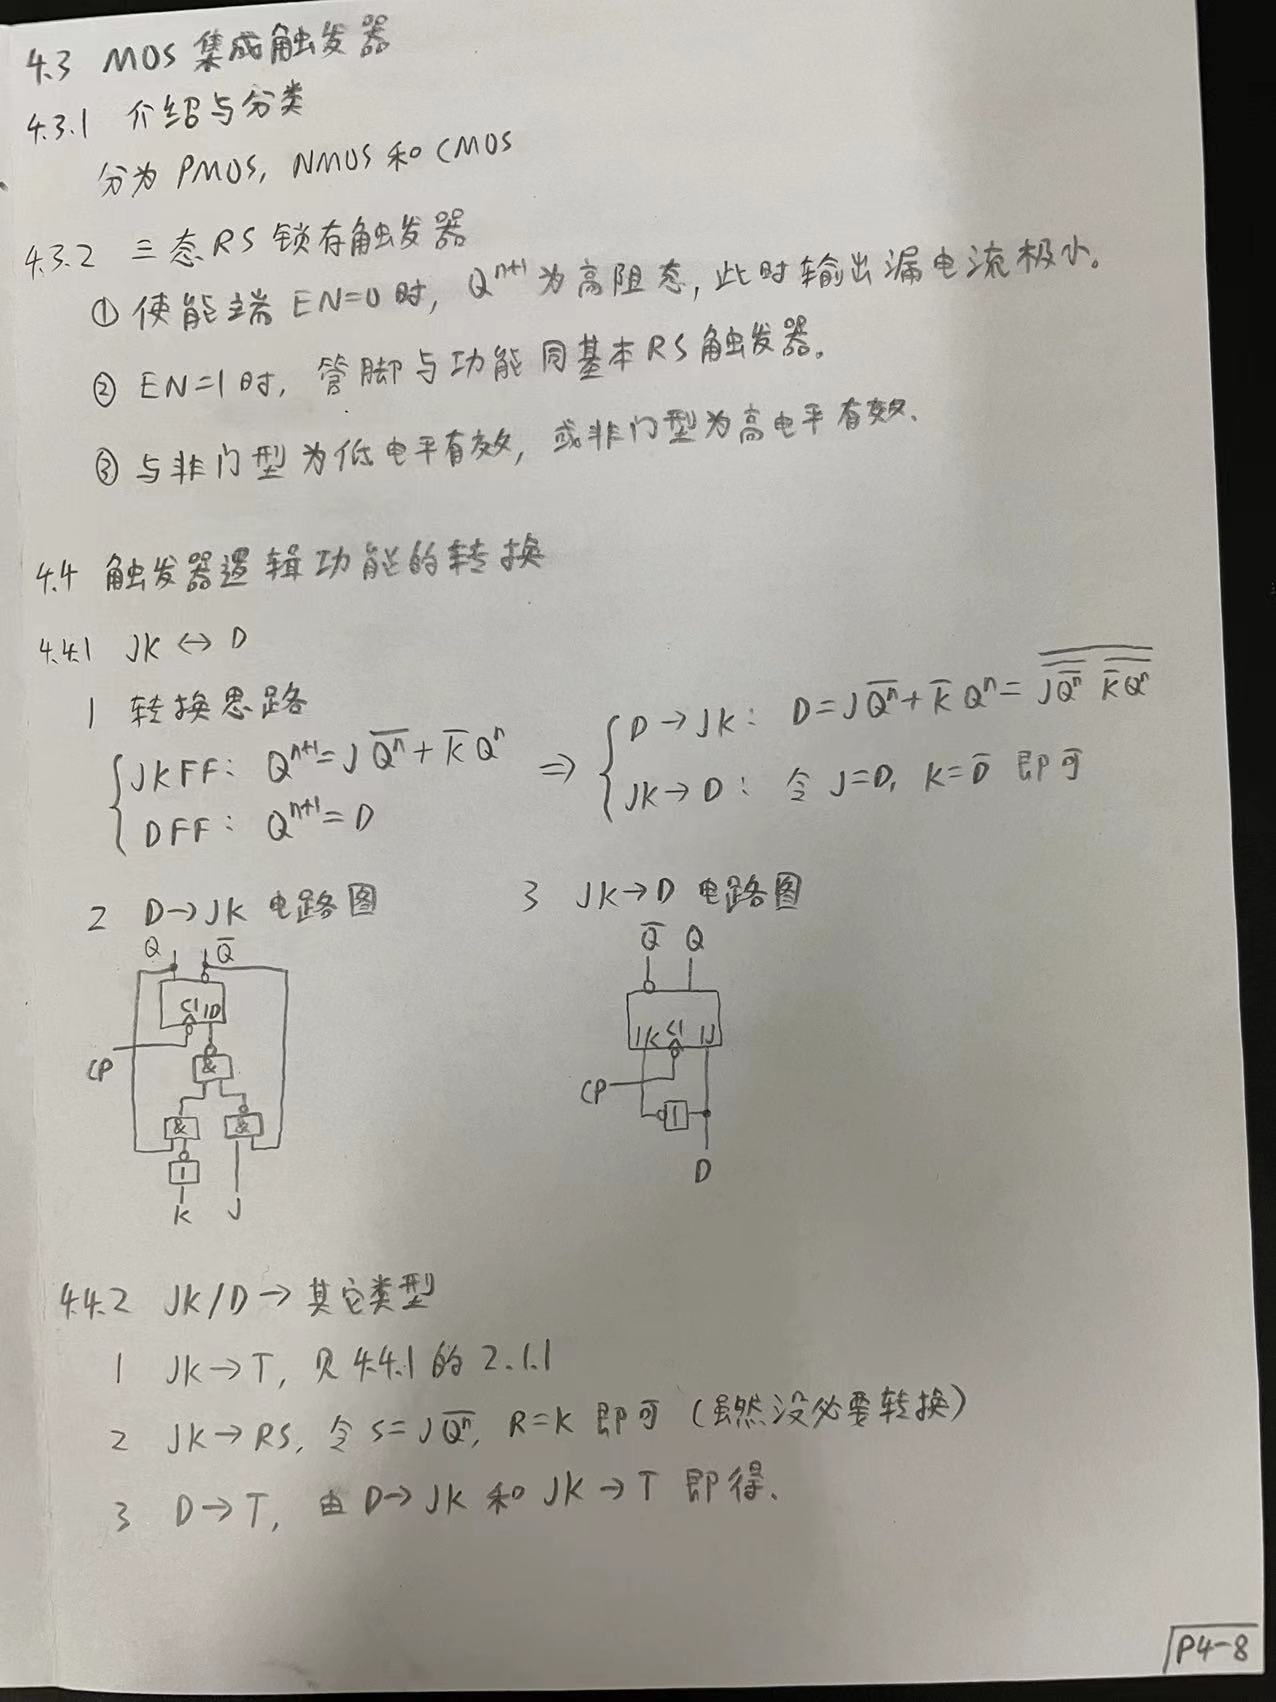 4.3 MOS 集成触发器
4.3.1 介绍与分类
分为 PMOS, NMOS 和 CMOS
4.3.2 三态RS 锁存触发器
① 使能端 EN=0 时, Qⁿ⁺¹ 为高阻态, 此时输出漏电流极小。
② EN=1 时, 管脚与功能同基本RS触发器。
③ 与非门型为低电平有效, 或非门型为高电平有效.
4.4 触发器逻辑功能的转换
4.4.1 JK ↔ D
1 转换思路
JKFF: Qⁿ⁺¹=J\overline{Qⁿ}+\overline{K}Qⁿ ⇒ D→JK: D=J\overline{Qⁿ}+\overline{K}Qⁿ=\overline{\overline{J\overline{Qⁿ}} \overline{\overline{K}Qⁿ}}
DFF: Qⁿ⁺¹=D JK→D: 令 J=D, K=\overline{D} 即可
2 D→JK 电路图
Q \overline{Q}
C1 1D
CP
&
& &
1
K J
3 JK→D 电路图
\overline{Q} Q
1K C1 1J
CP
1
D
4.4.2 JK/D → 其它类型
1 JK→T, 见 4.4.1 的 2.1.1
2 JK→RS, 令 S=J\overline{Qⁿ}, R=K 即可 (虽然没必要转换)
3 D→T, 由 D→JK 和 JK→T 即得.
P4-8